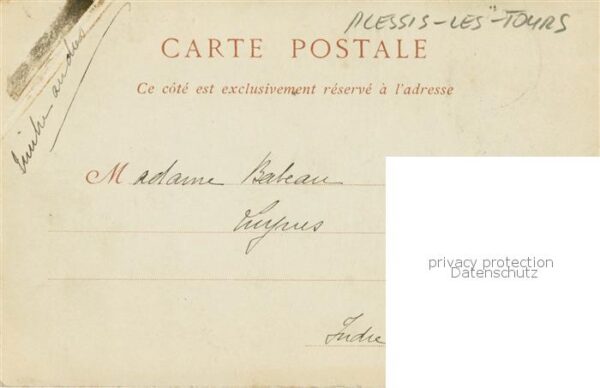 PLESSIS-LES-TOURS
CARTE POSTALE
Ce côté est exclusivement réservé à l'adresse
Madame Babeau
Luynes
Indre
privacy protection
Datenschutz